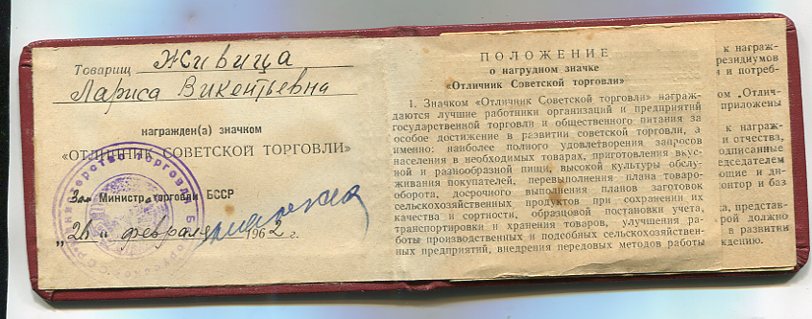 Товарищ Живица
Лариса Викентьевна
награжден(а) значком
«ОТЛИЧНИК СОВЕТСКОЙ ТОРГОВЛИ»
Зам Министра торговли БССР
февраля 1962 г.
ПОЛОЖЕНИЕ
о нагрудном значке
«Отличник Советской торговли»
1. Значком «Отличник Советской торговли» награж-
даются лучшие работники организаций и предприятий
государственной торговли и общественного питания за
особое достижение в развитии советской торговли, а
именно: наиболее полного удовлетворения запросов
населения в необходимых товарах, приготовления вкус-
ной и разнообразной пищи, высокой культуры обслу-
живания покупателей, перевыполнения плана товаро-
оборота, досрочного выполнения планов заготовок
сельскохозяйственных продуктов при сохранении их
качества и сортности, образцовой постановки учета,
транспортировки и хранения товаров, улучшения ра-
боты производственных и подсобных сельскохозяйствен-
ных предприятий, внедрения передовых методов работы
к награж-
резидиумов
и потреб-
ом „Отлич-
приложены
к награж-
отчество,
подписанные
редседателем
ющие и ди-
контор и баз
а, представ-
рой должно
в развитии
ждению.